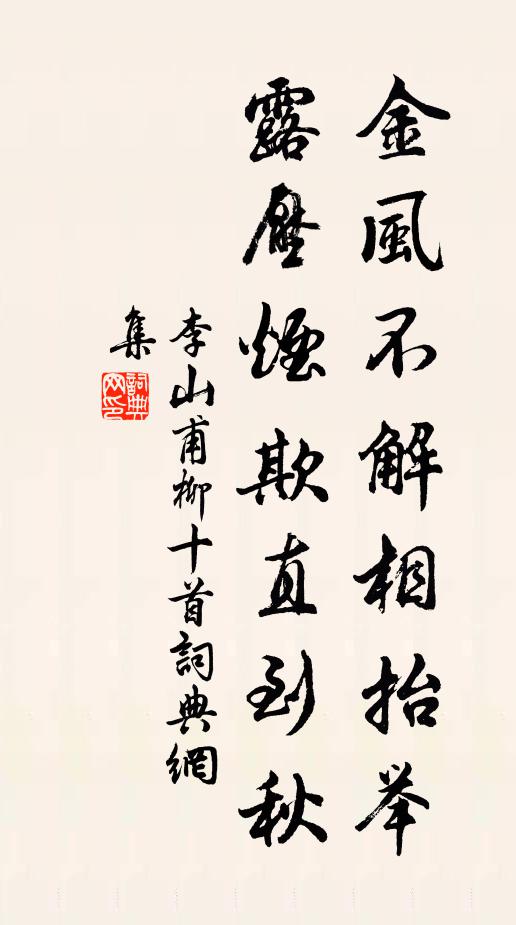 金風不解相抬举
露壓煙欺直到秋
李山甫柳十首詞典網
集
詞典
网印